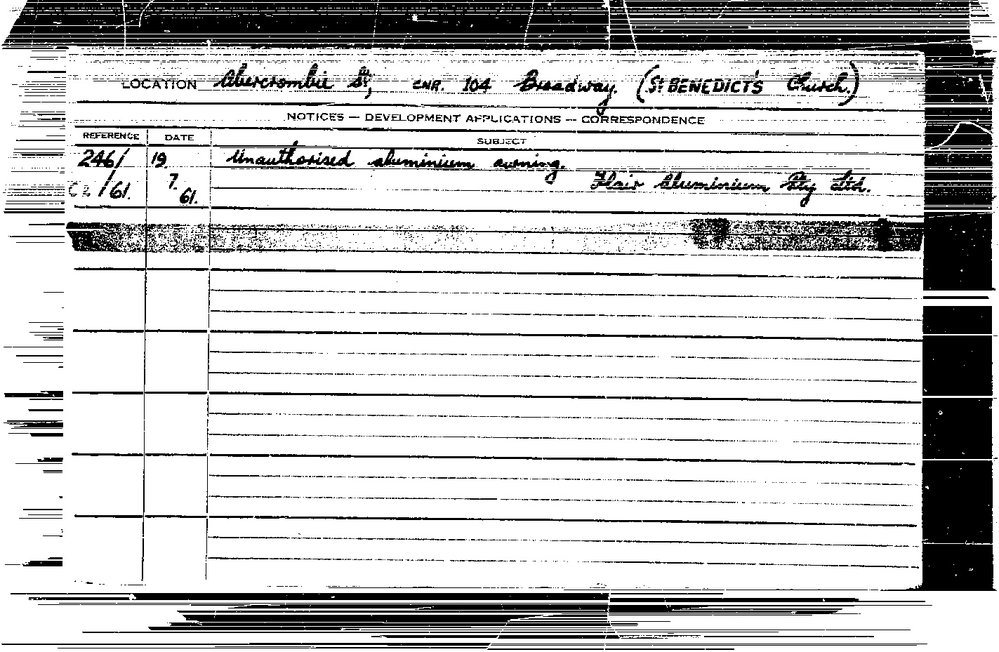 LOCATION Abercrombie St, CNR. 104 Broadway. (St BENEDICT'S Church.)
NOTICES — DEVELOPMENT APPLICATIONS — CORRESPONDENCE
REFERENCE DATE SUBJECT
246/ 19. Unauthorised aluminium awning.
/61. 7. Flair Aluminium Pty Ltd.
61.